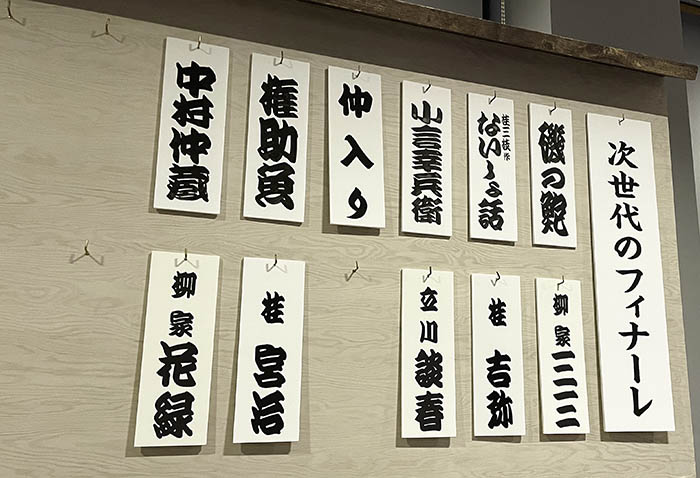 次世代のフィナーレ
磯の鮑
桂三枝作
ないしょ話
小言幸兵衛
仲入り
権助魚
中村仲蔵
柳家三三
桂 吉弥
立川談春
桂 宮治
柳家花緑